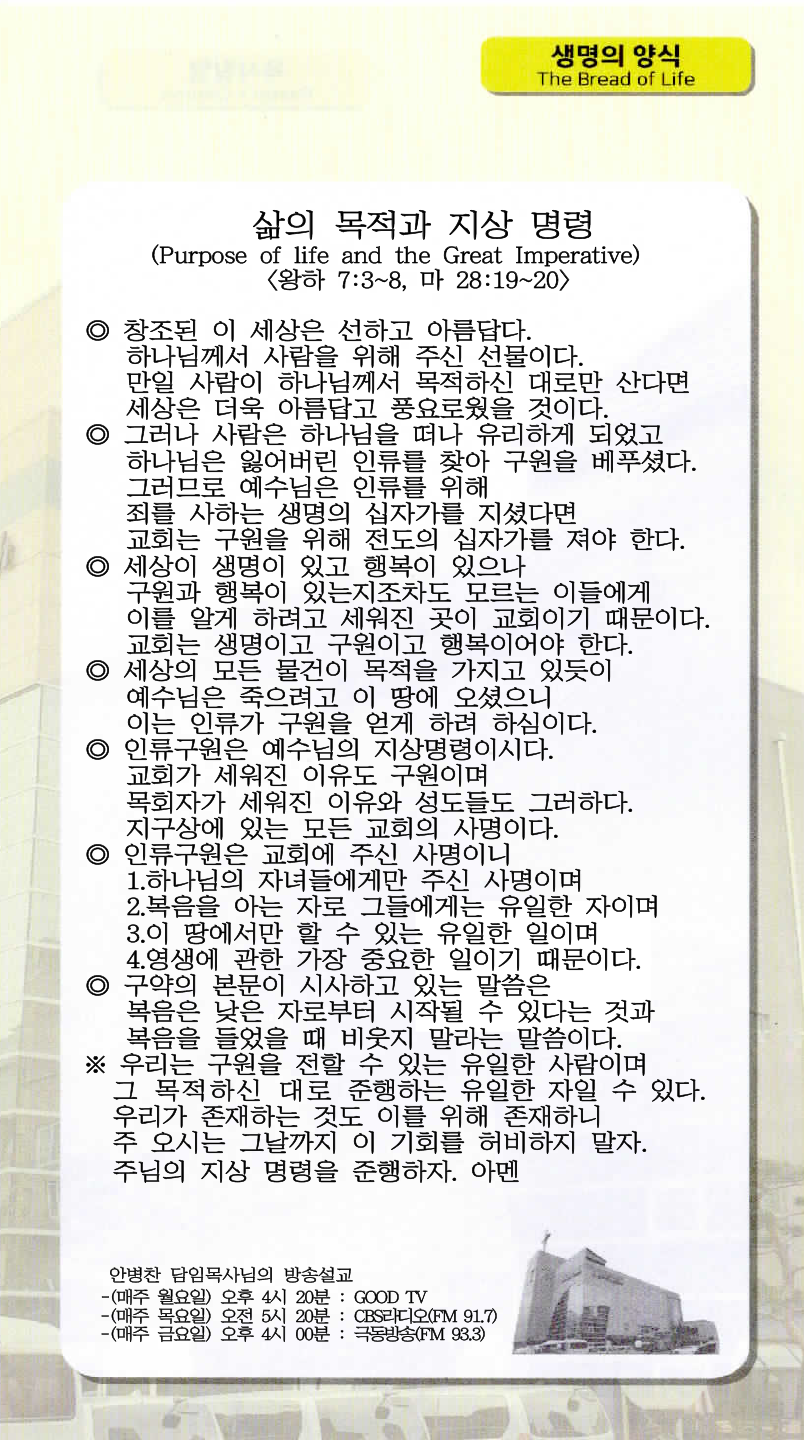 생명의 양식
The Bread of Life
삶의 목적과 지상 명령
(Purpose of life and the Great Imperative)
<왕하 7:3~8, 마 28:19~20>
◎ 창조된 이 세상은 선하고 아름답다.
하나님께서 사람을 위해 주신 선물이다.
만일 사람이 하나님께서 목적하신 대로만 산다면
세상은 더욱 아름답고 풍요로웠을 것이다.
◎ 그러나 사람은 하나님을 떠나 유리하게 되었고
하나님은 잃어버린 인류를 찾아 구원을 베푸셨다.
그러므로 예수님은 인류를 위해
죄를 사하는 생명의 십자가를 지셨다면
교회는 구원을 위해 전도의 십자가를 져야 한다.
◎ 세상이 생명이 있고 행복이 있으나
구원과 행복이 있는지조차도 모르는 이들에게
이를 알게 하려고 세워진 곳이 교회이기 때문이다.
교회는 생명이고 구원이고 행복이어야 한다.
◎ 세상의 모든 물건이 목적을 가지고 있듯이
예수님은 죽으려고 이 땅에 오셨으니
이는 인류가 구원을 얻게 하려 하심이다.
◎ 인류구원은 예수님의 지상명령이시다.
교회가 세워진 이유도 구원이며
목회자가 세워진 이유와 성도들도 그러하다.
지구상에 있는 모든 교회의 사명이다.
◎ 인류구원은 교회에 주신 사명이니
1.하나님의 자녀들에게만 주신 사명이며
2.복음을 아는 자로 그들에게는 유일한 자이며
3.이 땅에서만 할 수 있는 유일한 일이며
4.영생에 관한 가장 중요한 일이기 때문이다.
◎ 구약의 본문이 시사하고 있는 말씀은
복음은 낮은 자로부터 시작될 수 있다는 것과
복음을 들었을 때 비웃지 말라는 말씀이다.
※ 우리는 구원을 전할 수 있는 유일한 사람이며
그 목적하신 대로 준행하는 유일한 자일 수 있다.
우리가 존재하는 것도 이를 위해 존재하니
주 오시는 그날까지 이 기회를 허비하지 말자.
주님의 지상 명령을 준행하자. 아멘
안병찬 담임목사님의 방송설교
-(매주 월요일) 오후 4시 20분 : GOOD TV
-(매주 목요일) 오전 5시 20분 : CBS라디오(FM 91.7)
-(매주 금요일) 오후 4시 00분 : 극동방송(FM 93.3)